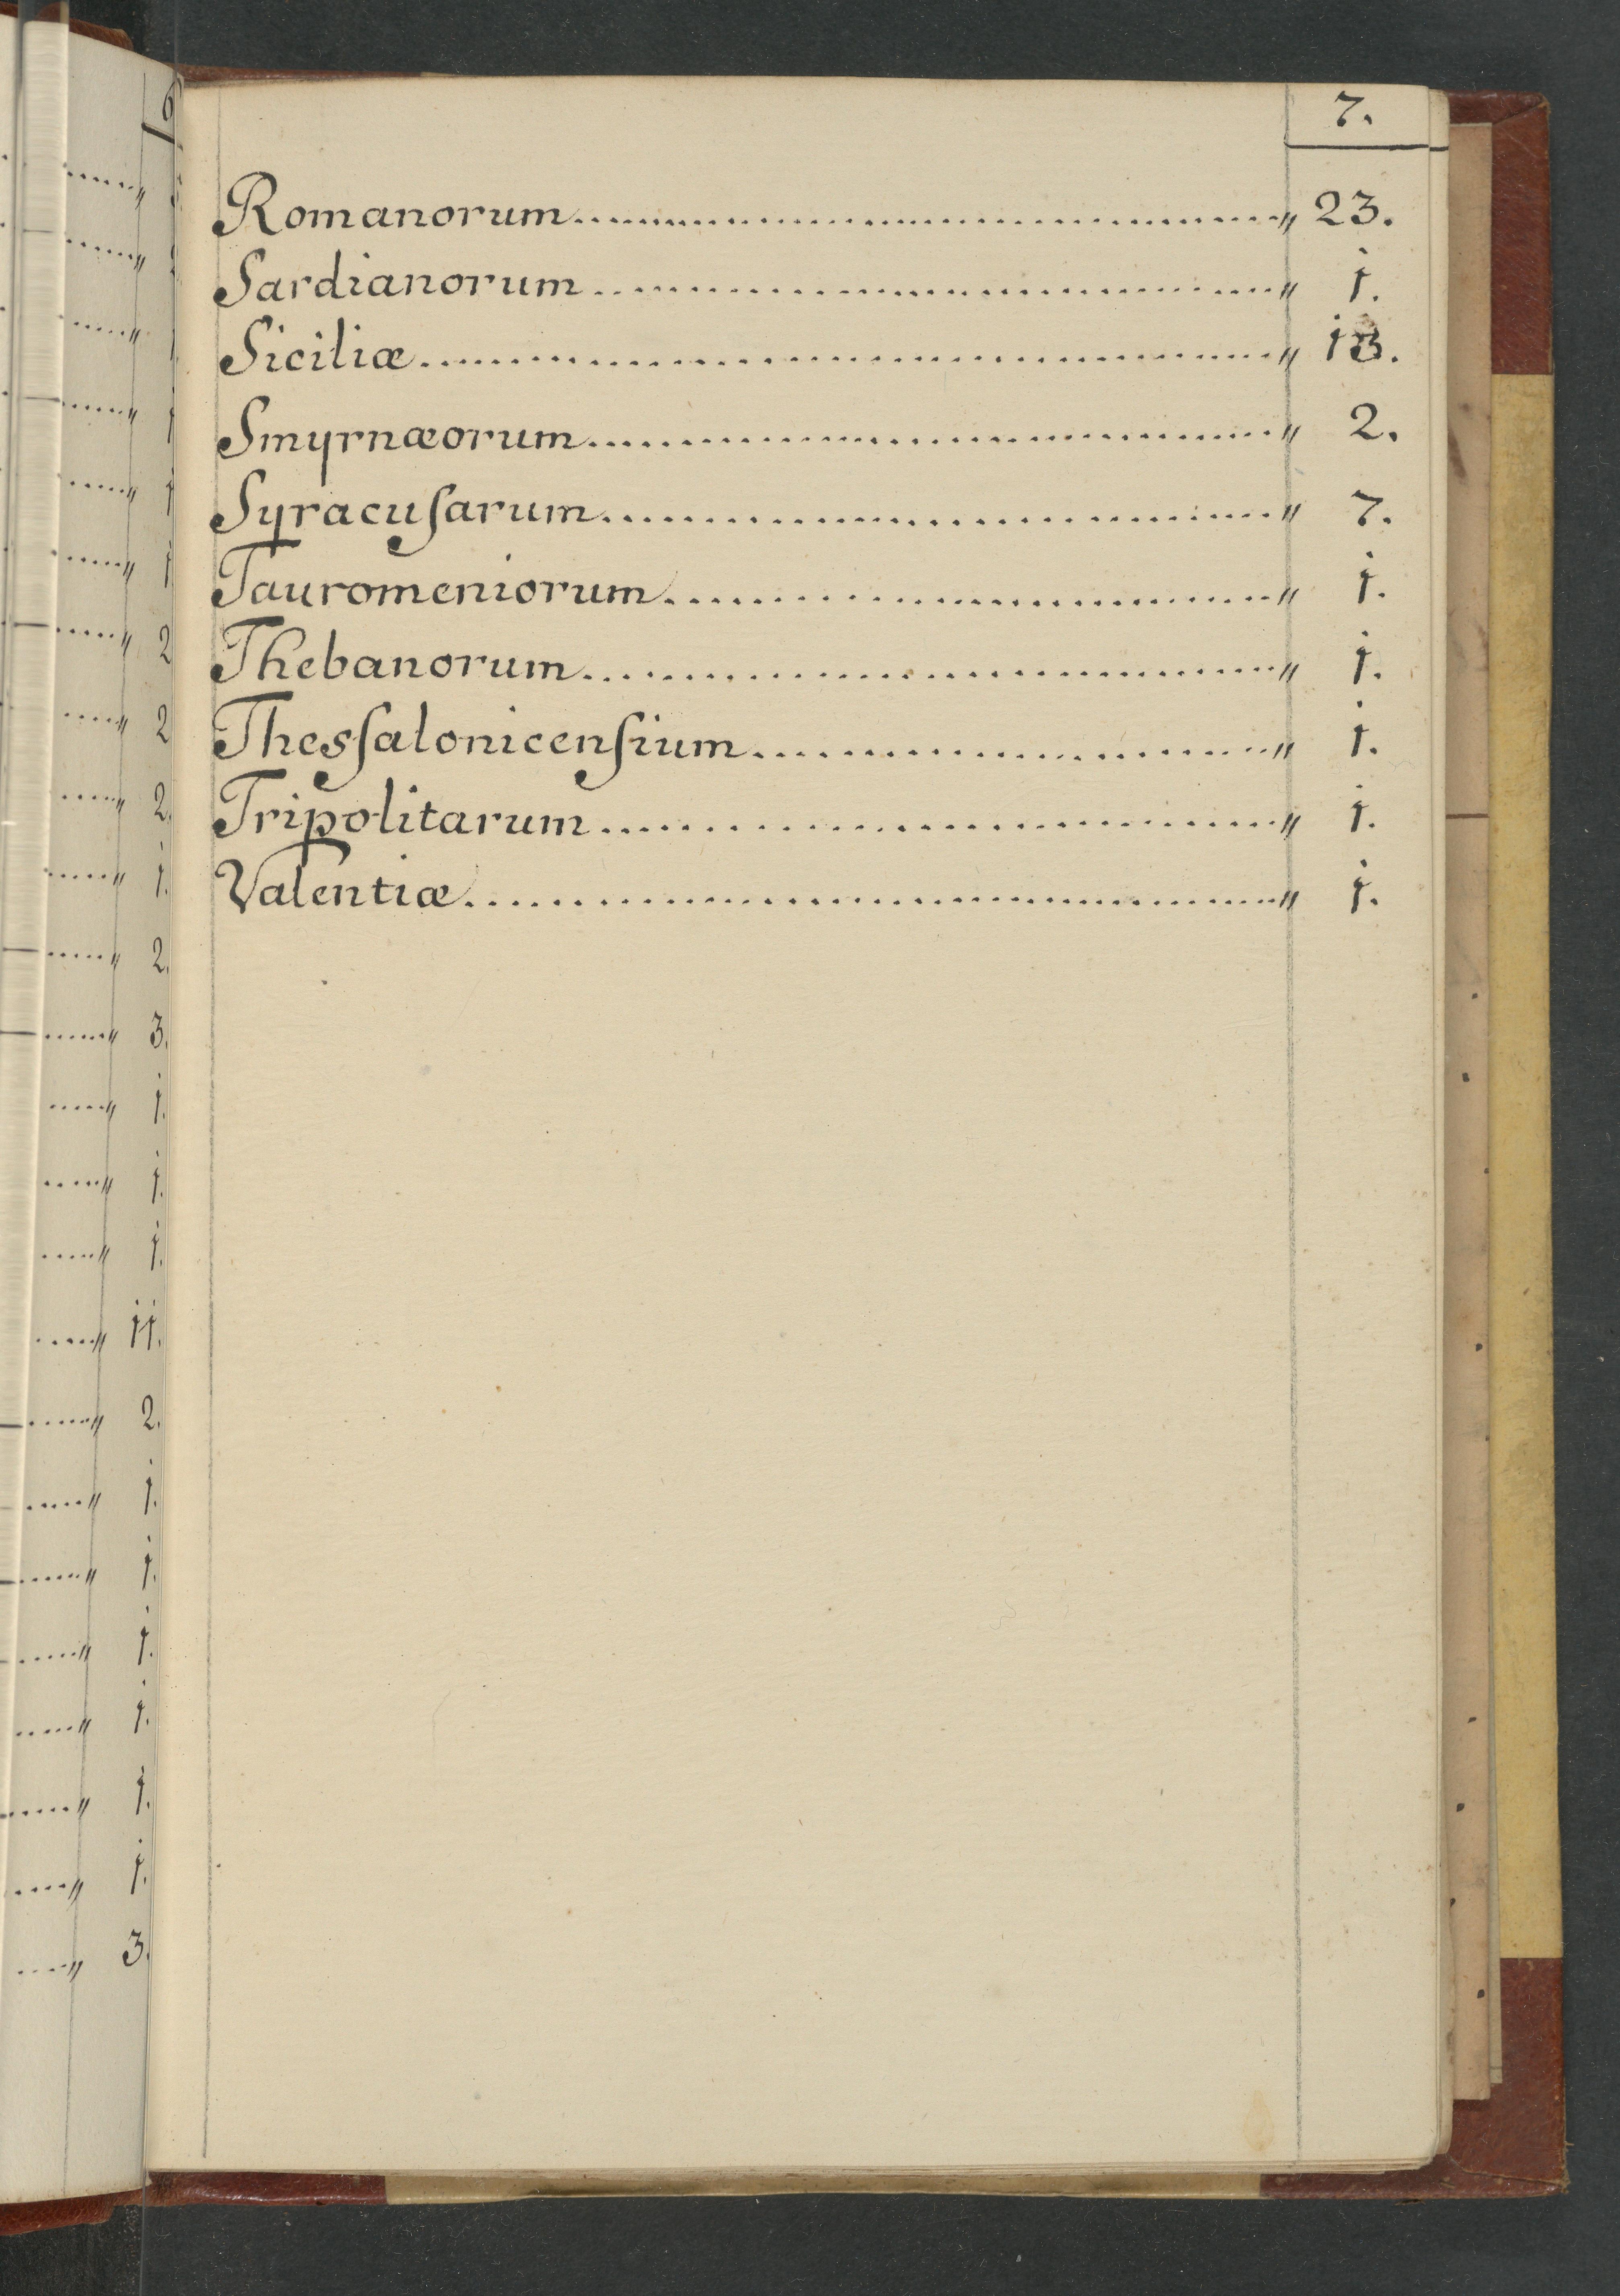 7.
Romanorum........................................〃 23.
Sardianorum........................................〃 1.
Siciliæ........................................〃 13.
Smyrnæorum........................................〃 2.
Syracuſarum........................................〃 7.
Tauromeniorum........................................〃 1.
Thebanorum........................................〃 1.
Thesſalonicenſium........................................〃 1.
Tripolitarum........................................〃 1.
Valentiæ........................................〃 1.
6
1
1
1
2
2
2.
1.
2.
3.
1.
1.
1.
11.
2.
1.
1.
1.
1.
1.
1.
3.